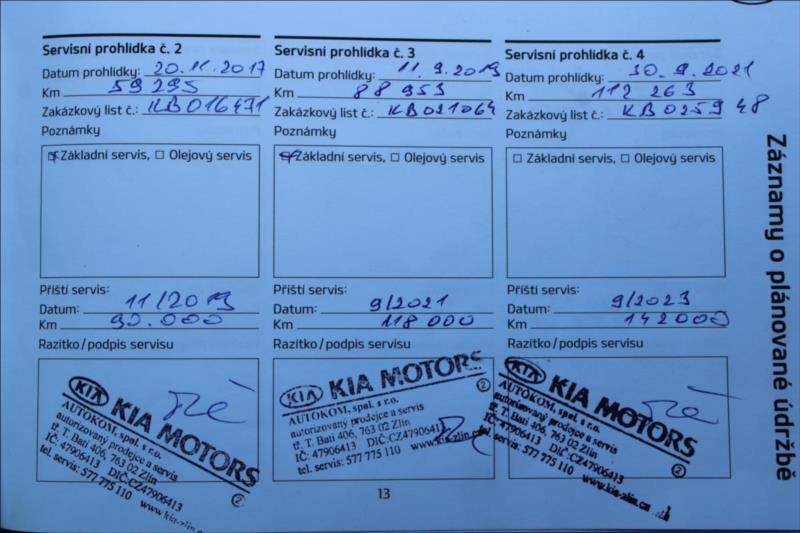 Servisní prohlídka č. 2
Datum prohlídky: 20.11.2017
Km 59 295
Zakázkový list č.: KB016471
Poznámky
Základní servis, Olejový servis
Příští servis:
Datum: 11/2019
Km 90.000
Razítko/podpis servisu
KIA KIA MOTORS
AUTOKOM, spol. s r.o.
autorizovaný prodejce a servis
tř. T. Bati 406, 763 02 Zlín
IČ: 47906413 DIČ:CZ47906413
tel. servis: 577 775 110 www.kia-zlin.cz
2
Servisní prohlídka č. 3
Datum prohlídky: 11.9.2019
Km 88 953
Zakázkový list č.: KB021064
Poznámky
Základní servis, Olejový servis
Příští servis:
Datum: 9/2021
Km 118 000
Razítko/podpis servisu
KIA KIA MOTORS
AUTOKOM, spol. s r.o.
autorizovaný prodejce a servis
tř. T. Bati 406, 763 02 Zlín
IČ: 47906413 DIČ:CZ47906413
tel. servis: 577 775 110
2
Servisní prohlídka č. 4
Datum prohlídky: 30.9.2021
Km 112 263
Zakázkový list č.: KB025948
Poznámky
Základní servis, Olejový servis
Příští servis:
Datum: 9/2023
Km 142000
Razítko/podpis servisu
KIA KIA MOTORS
AUTOKOM, spol. s r.o.
autorizovaný prodejce a servis
tř. T. Bati 406, 763 02 Zlín
IČ: 47906413 DIČ:CZ47906413
tel. servis: 577 775 110
www.kia-zlin.cz
2
13
Záznamy o plánované údržbě